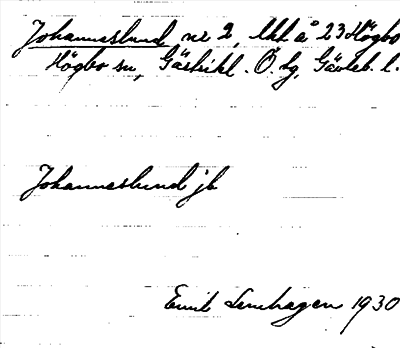 Johanneslund nr 2, lht å 23 Högbo
Högbo sn, Gästrikl. Ö. tg, Gävleb. l.
Johanneslund jb
Emil Lenhagen 1930